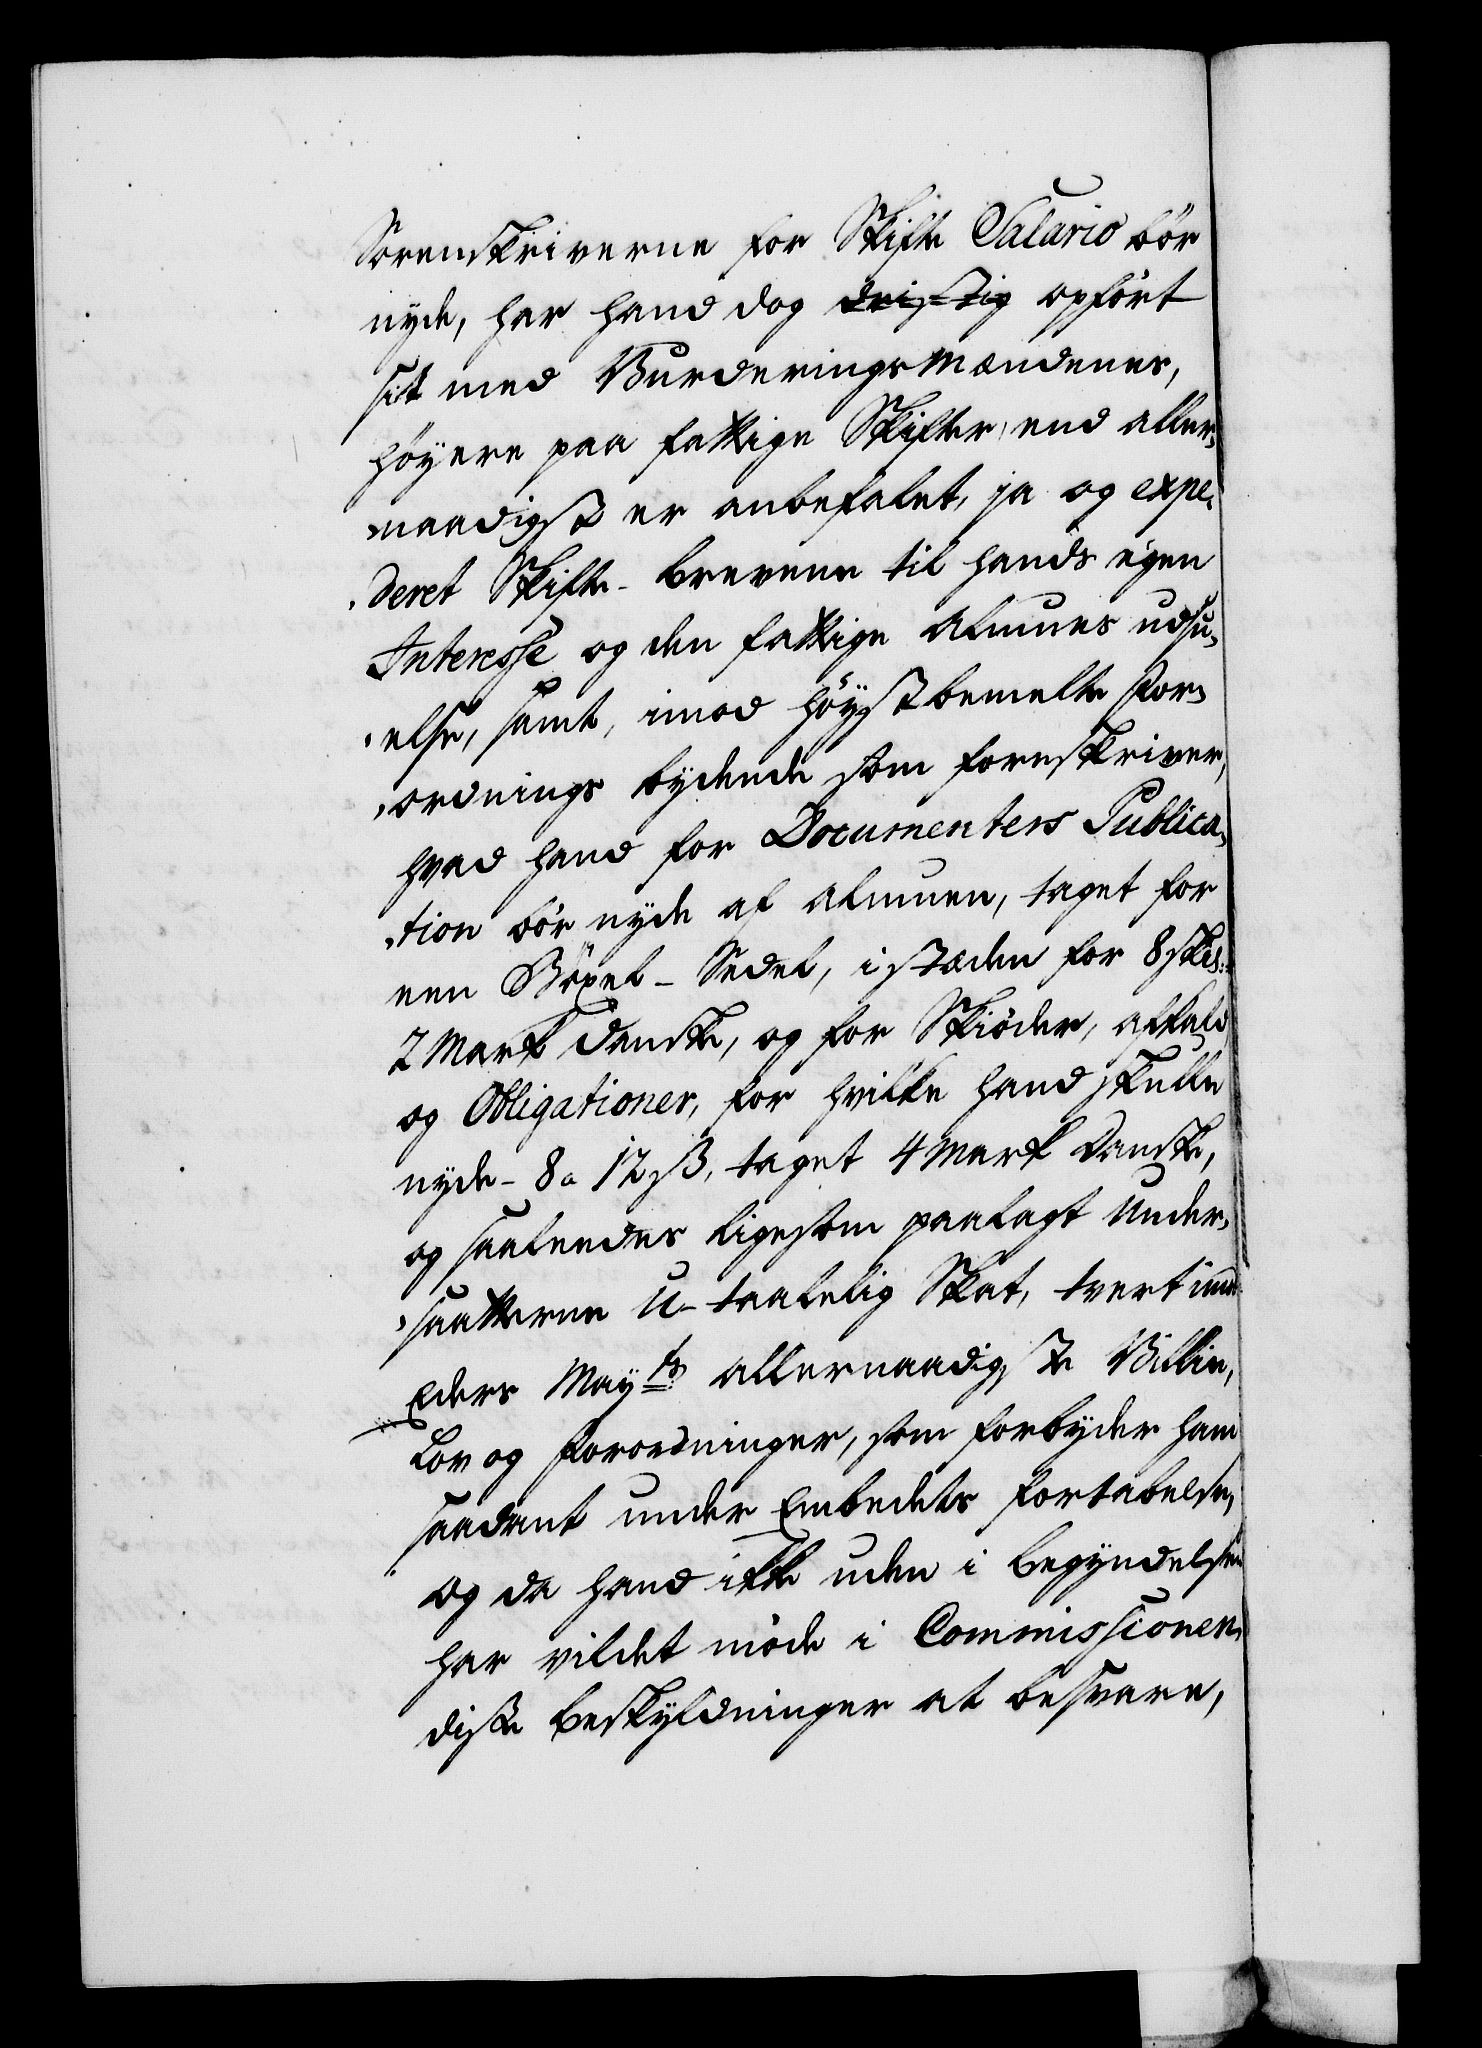 Sorenskriverne for Skifte Salario bör
nyde, har hand dog dristig opfört
sit med Vurderings Mændenes,
höyere paa fattige Skifter, end aller¬
¬naadigst er anbefalet, ja og expe¬
¬deret Skifte-brevene til hands egen
Interesse og den fattige Almues udsu¬
¬else, samt, imod höystbemelte For¬
¬ordnings bydende som foreskriver,
hvad hand for Documenters Publica¬
¬tion bör nyde af Almuen, taget for
een Böxel-Sedel, i stæden for 8 skil:
2 Mark danske, og for Skiöder, afkald
og Obligationer, for hvilke hand skulle
nyde - 8 a 12 ß, taget 4 Mark Danske,
og saaledes ligesom paalagt Under¬
¬saatterne U-taalelig Skat, tvert imod
Eders Mayts allernaadigste Villie,
Lov og Forordninger, som forbyder ham
saadant under Embedets Fortabelse,
og da hand ikke uden i begyndelsen
har vildet möde i Commissionen
disse beskyldninger at besvare,